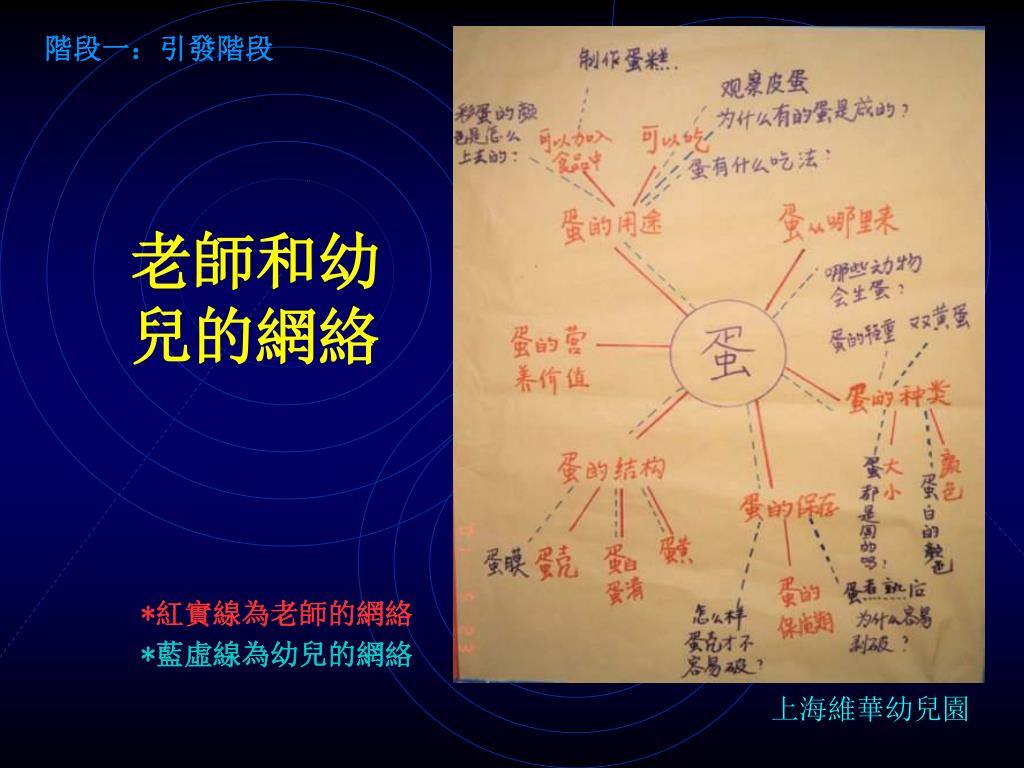 階段一：引發階段
老師和幼
兒的網絡
*紅實線為老師的網絡
*藍虛線為幼兒的網絡
制作蛋糕.
观察皮蛋
为什么有的蛋是咸的？
蛋有什么吃法？
彩蛋的颜
色是怎么
上去的：
可以加入
食品中
可以吃
蛋的用途
蛋从哪里来
哪些动物
会生蛋？
蛋的轻重
双黄蛋
蛋的营
养价值
蛋
蛋的种类
蛋的结构
蛋膜
蛋壳
蛋白
蛋清
蛋黄
蛋的保存
大
小
蛋
都
是
圆
的
吗？
颜
色
蛋
白
的
颜
色
怎么样
蛋壳才不
容易破？
蛋的
保质期
蛋煮熟后
为什么容易
剥破？
上海維華幼兒園